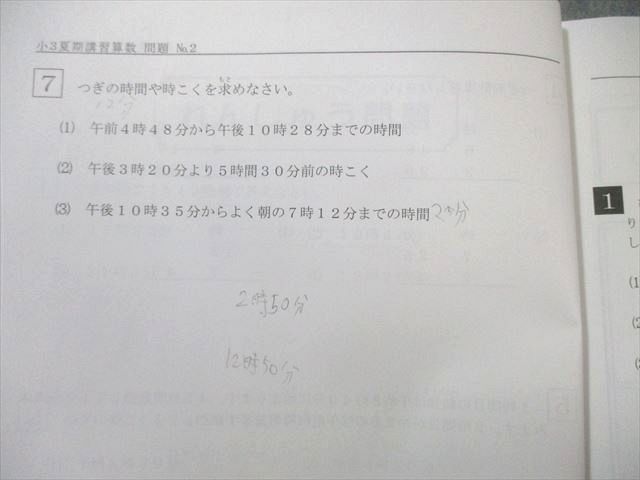 小3夏期講習算数 問題 No.2
7 つぎの時間や時こくを求めなさい。
もと
12分
(1) 午前4時48分から午後10時28分までの時間
(2) 午後3時20分より5時間30分前の時こく
(3) 午後10時35分からよく朝の7時12分までの時間
2時50分
12時50分
1
り
し
(1
(2